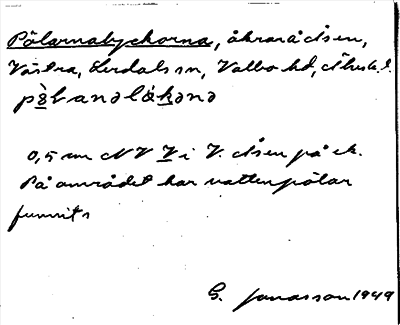 Pölarnalyckorna, åkrar å Åsen,
Västra, Lerdals sn, Valbo hd, Älvsb. l.
pö̀lanəlǻkənə
0,5 cm NV V i V. Åsen på ek.
På området har vattenpölar
funnits
G. Jonasson 1949